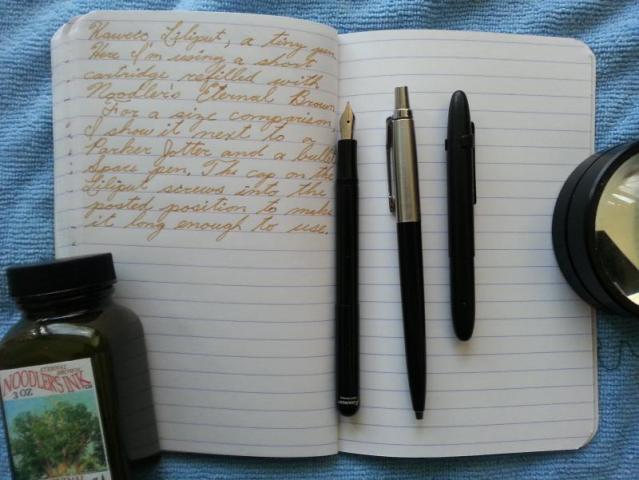 Kaweco Liliput, a tiny pen.
Here I'm using a short
cartridge refilled with
Noodler's Eternal Brown.
For a size comparison,
I show it next to a
Parker Jotter and a bullet
Space pen. The cap on the
Liliput screws into the
posted position to make
it long enough to use.
ETERNAL BROWN
NOODLER'S INK
3 OZ